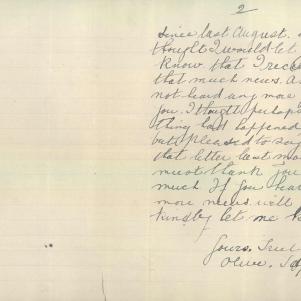 2
since last August.
thought I would let
know that I rece
that much news. A
not heard any more
you. I thought perhap
thing had happened
but pleased to say
that letter last mo
must thank you
much If you hear
more news will
kindly let me k
Yours. Trul
Olive.